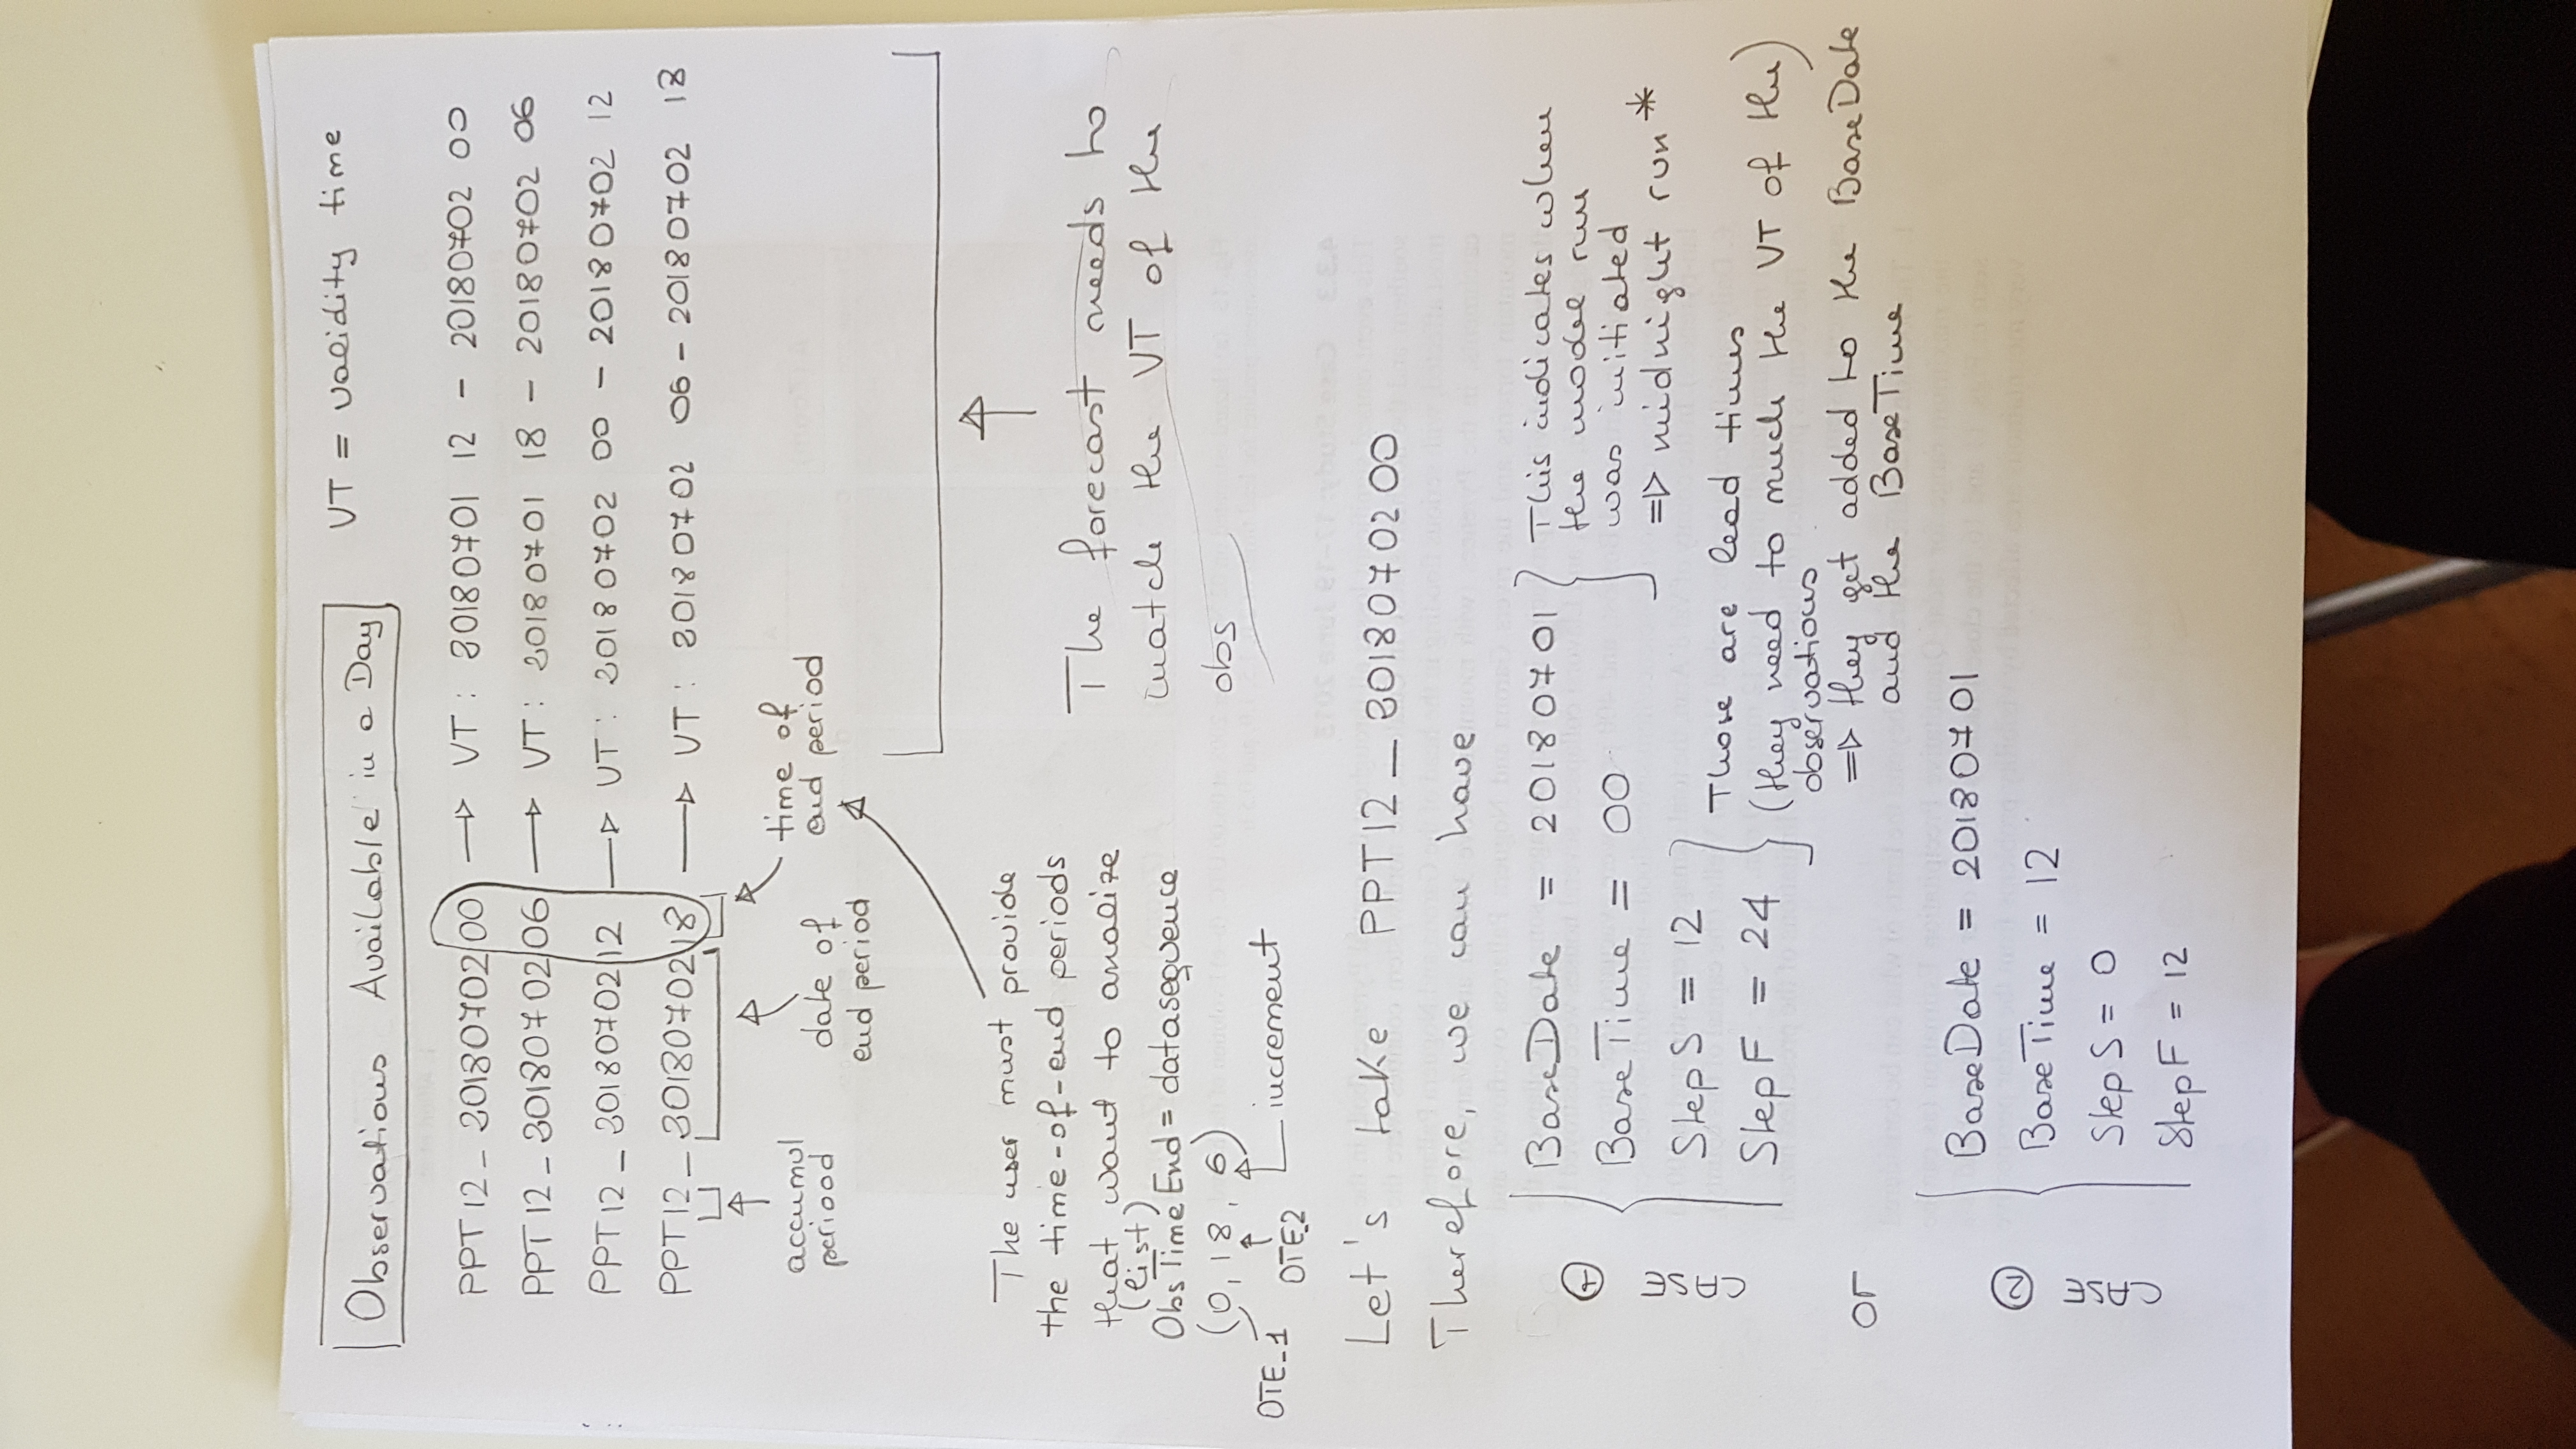 Observations Available in a Day
VT = validity time
PPT12_2018070200 → VT: 20180701 12 - 20180702 00
PPT12_2018070206 → VT: 20180701 18 - 20180702 06
PPT12_2018070212 → VT: 20180702 00 - 20180702 12
PPT12_2018070218 → VT: 20180702 06 - 20180702 18
accumul
periood
date of
end period
time of
end period
The user must provide
the time-of-end periods
that want to analize
(list)
ObsTimeEnd = datasequence
(0, 18, 6)
OTE_1
OTE_2
increment
The forecast needs to
match the VT of the
obs
Let's take PPT12_2018070200
Therefore, we can have
CASE 1
BaseDate = 20180701
BaseTime = 00
StepS = 12
StepF = 24
This indicates when
the model run
was initiated
⇒ midnight run *
Those are lead times
(they need to much the VT of the)
observations
⇒ they get added to the BaseDate
and the BaseTime
or
CASE 2
BaseDate = 20180701
BaseTime = 12
StepS = 0
StepF = 12